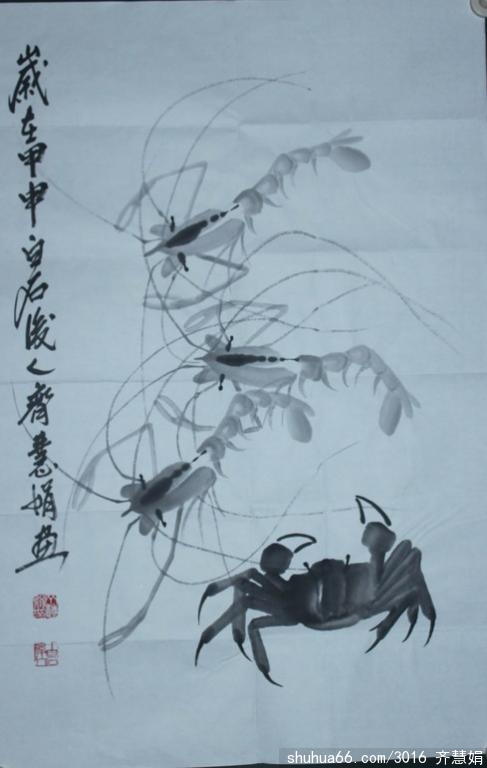 歲在甲申白石後人齊慧娟畫
shuhua66.com/3016 齐慧娟